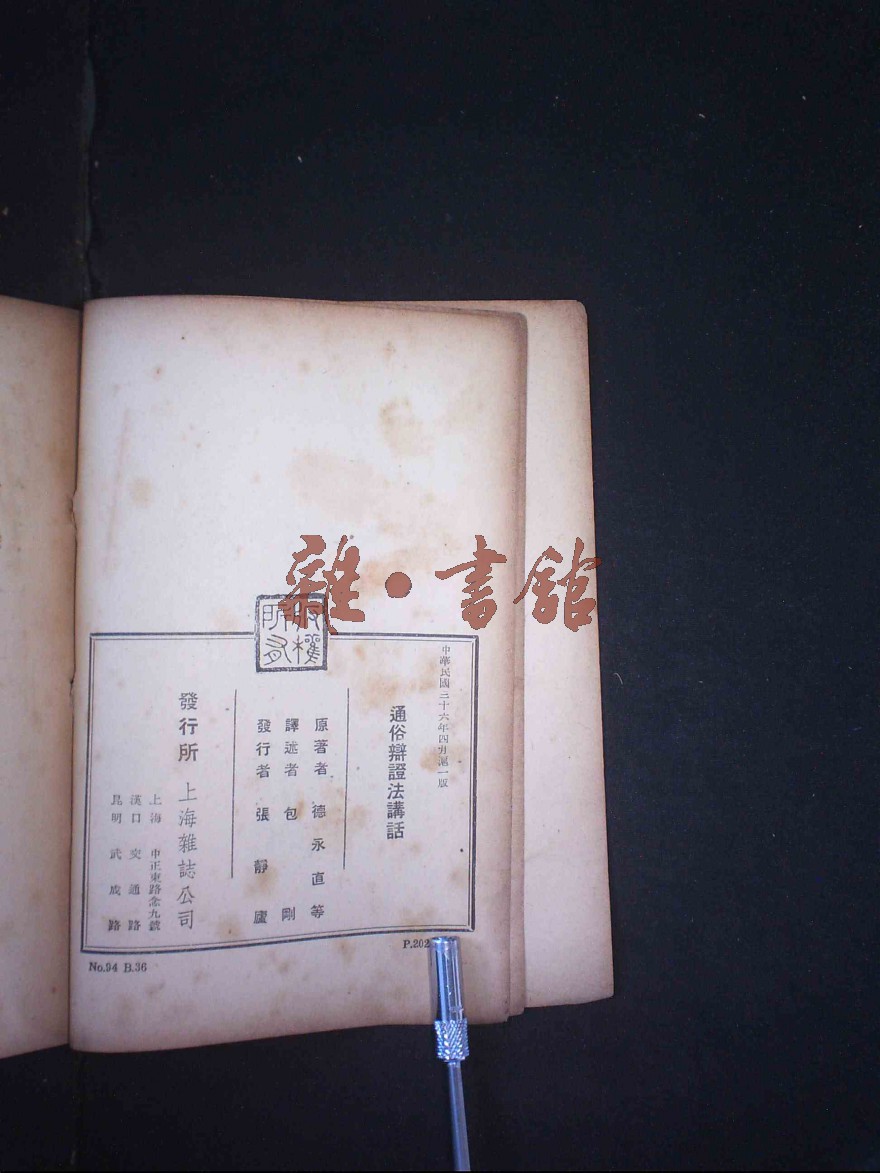 雜·書館
版權所有
中華民國三十六年四月滬一版
通俗辯證法講話
原著者 德永直等
譯述者 包剛
發行者 張靜廬
發行所 上海雜誌公司
上海 中正東路念九號
漢口 交通路
昆明 武成路
P.202
No.94 B.36